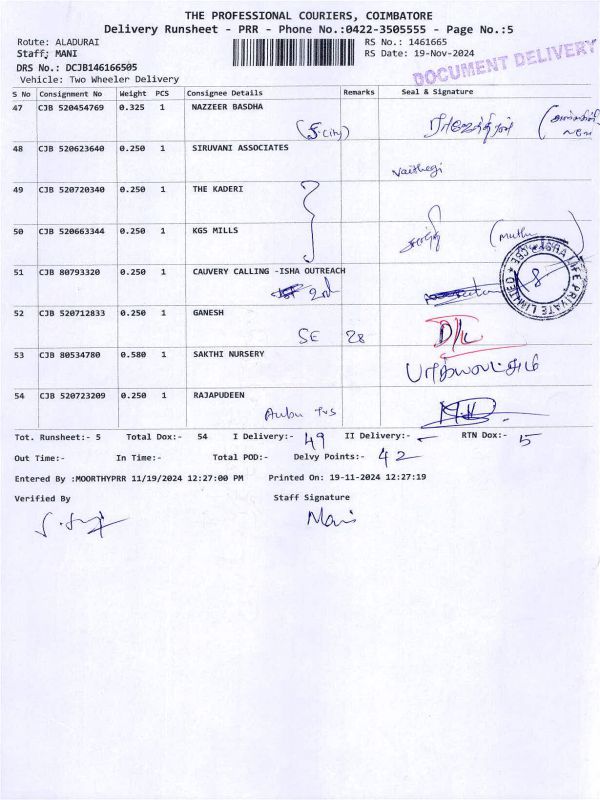 THE PROFESSIONAL COURIERS, COIMBATORE
Delivery Runsheet - PRR - Phone No.:0422-3505555 - Page No.:5
Route: ALADURAI
RS No.: 1461665
Staff: MANI
RS Date: 19-Nov-2024
DOCUMENT DELIVERY
DRS No.: DCJB146166505
Vehicle: Two Wheeler Delivery
S No Consignment No Weight PCS Consignee Details Remarks Seal & Signature
47 CJB 520454769 0.325 1 NAZZEER BASDHA
48 CJB 520623640 0.250 1 SIRUVANI ASSOCIATES
Vaishegi
49 CJB 520720340 0.250 1 THE KADERI
50 CJB 520663344 0.250 1 KGS MILLS
(Muthu
51 CJB 80793320 0.250 1 CAUVERY CALLING -ISHA OUTREACH
2nd
ISHA LIFE PRIVATE LIMITED * CBE *
8
52 CJB 520712833 0.250 1 GANESH
SE 28 D/L
53 CJB 80534780 0.580 1 SAKTHI NURSERY
54 CJB 520723209 0.250 1 RAJAPUDEEN
Anbu
Tot. Runsheet:- 5 Total Dox:- 54 I Delivery:- 49 II Delivery:- - RTN Dox:- 5
Out Time:- In Time:- Total POD:- Delvy Points:- 42
Entered By :MOORTHYPRR 11/19/2024 12:27:00 PM Printed On: 19-11-2024 12:27:19
Verified By Staff Signature
Mani